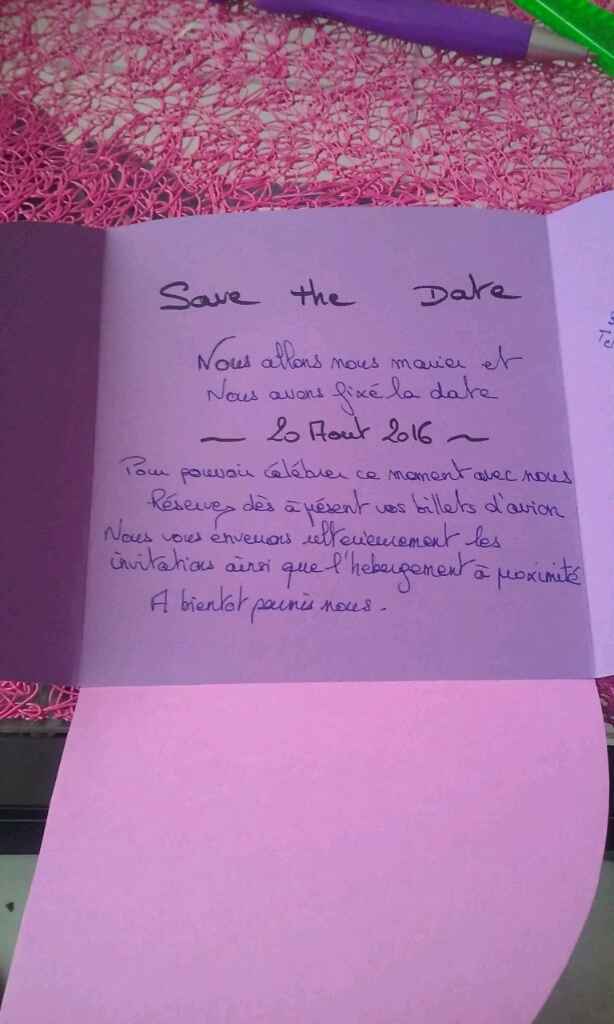 Save the Date
Nous allons nous marier et
Nous avons fixé la date
~ 20 Aout 2016 ~
Pour pouvoir célébrer ce moment avec nous
Réservez dès à présent vos billets d'avion
Nous vous enverrons ulterieurement les
invitations ainsi que l'hebergement à proximité
A bientot parmis nous.